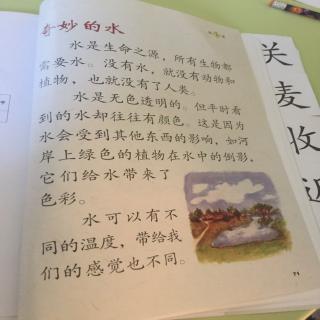 奇妙的水
水是生命之源，所有生物都
需要水。没有水，就没有动物和
植物，也就没有了人类。
水是无色透明的。但平时看
到的水却往往有颜色。这是因为
水会受到其他东西的影响，如河
岸上绿色的植物在水中的倒影，
它们给水带来了
色彩。
水可以有不
同的温度，带给我
们的感觉也不同。
关
麦
收